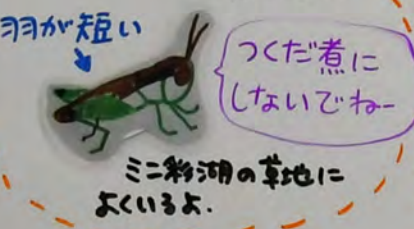 羽が短い
つくだ煮に
しないでねー
ミニ彩湖の草地に
よくいるよ.